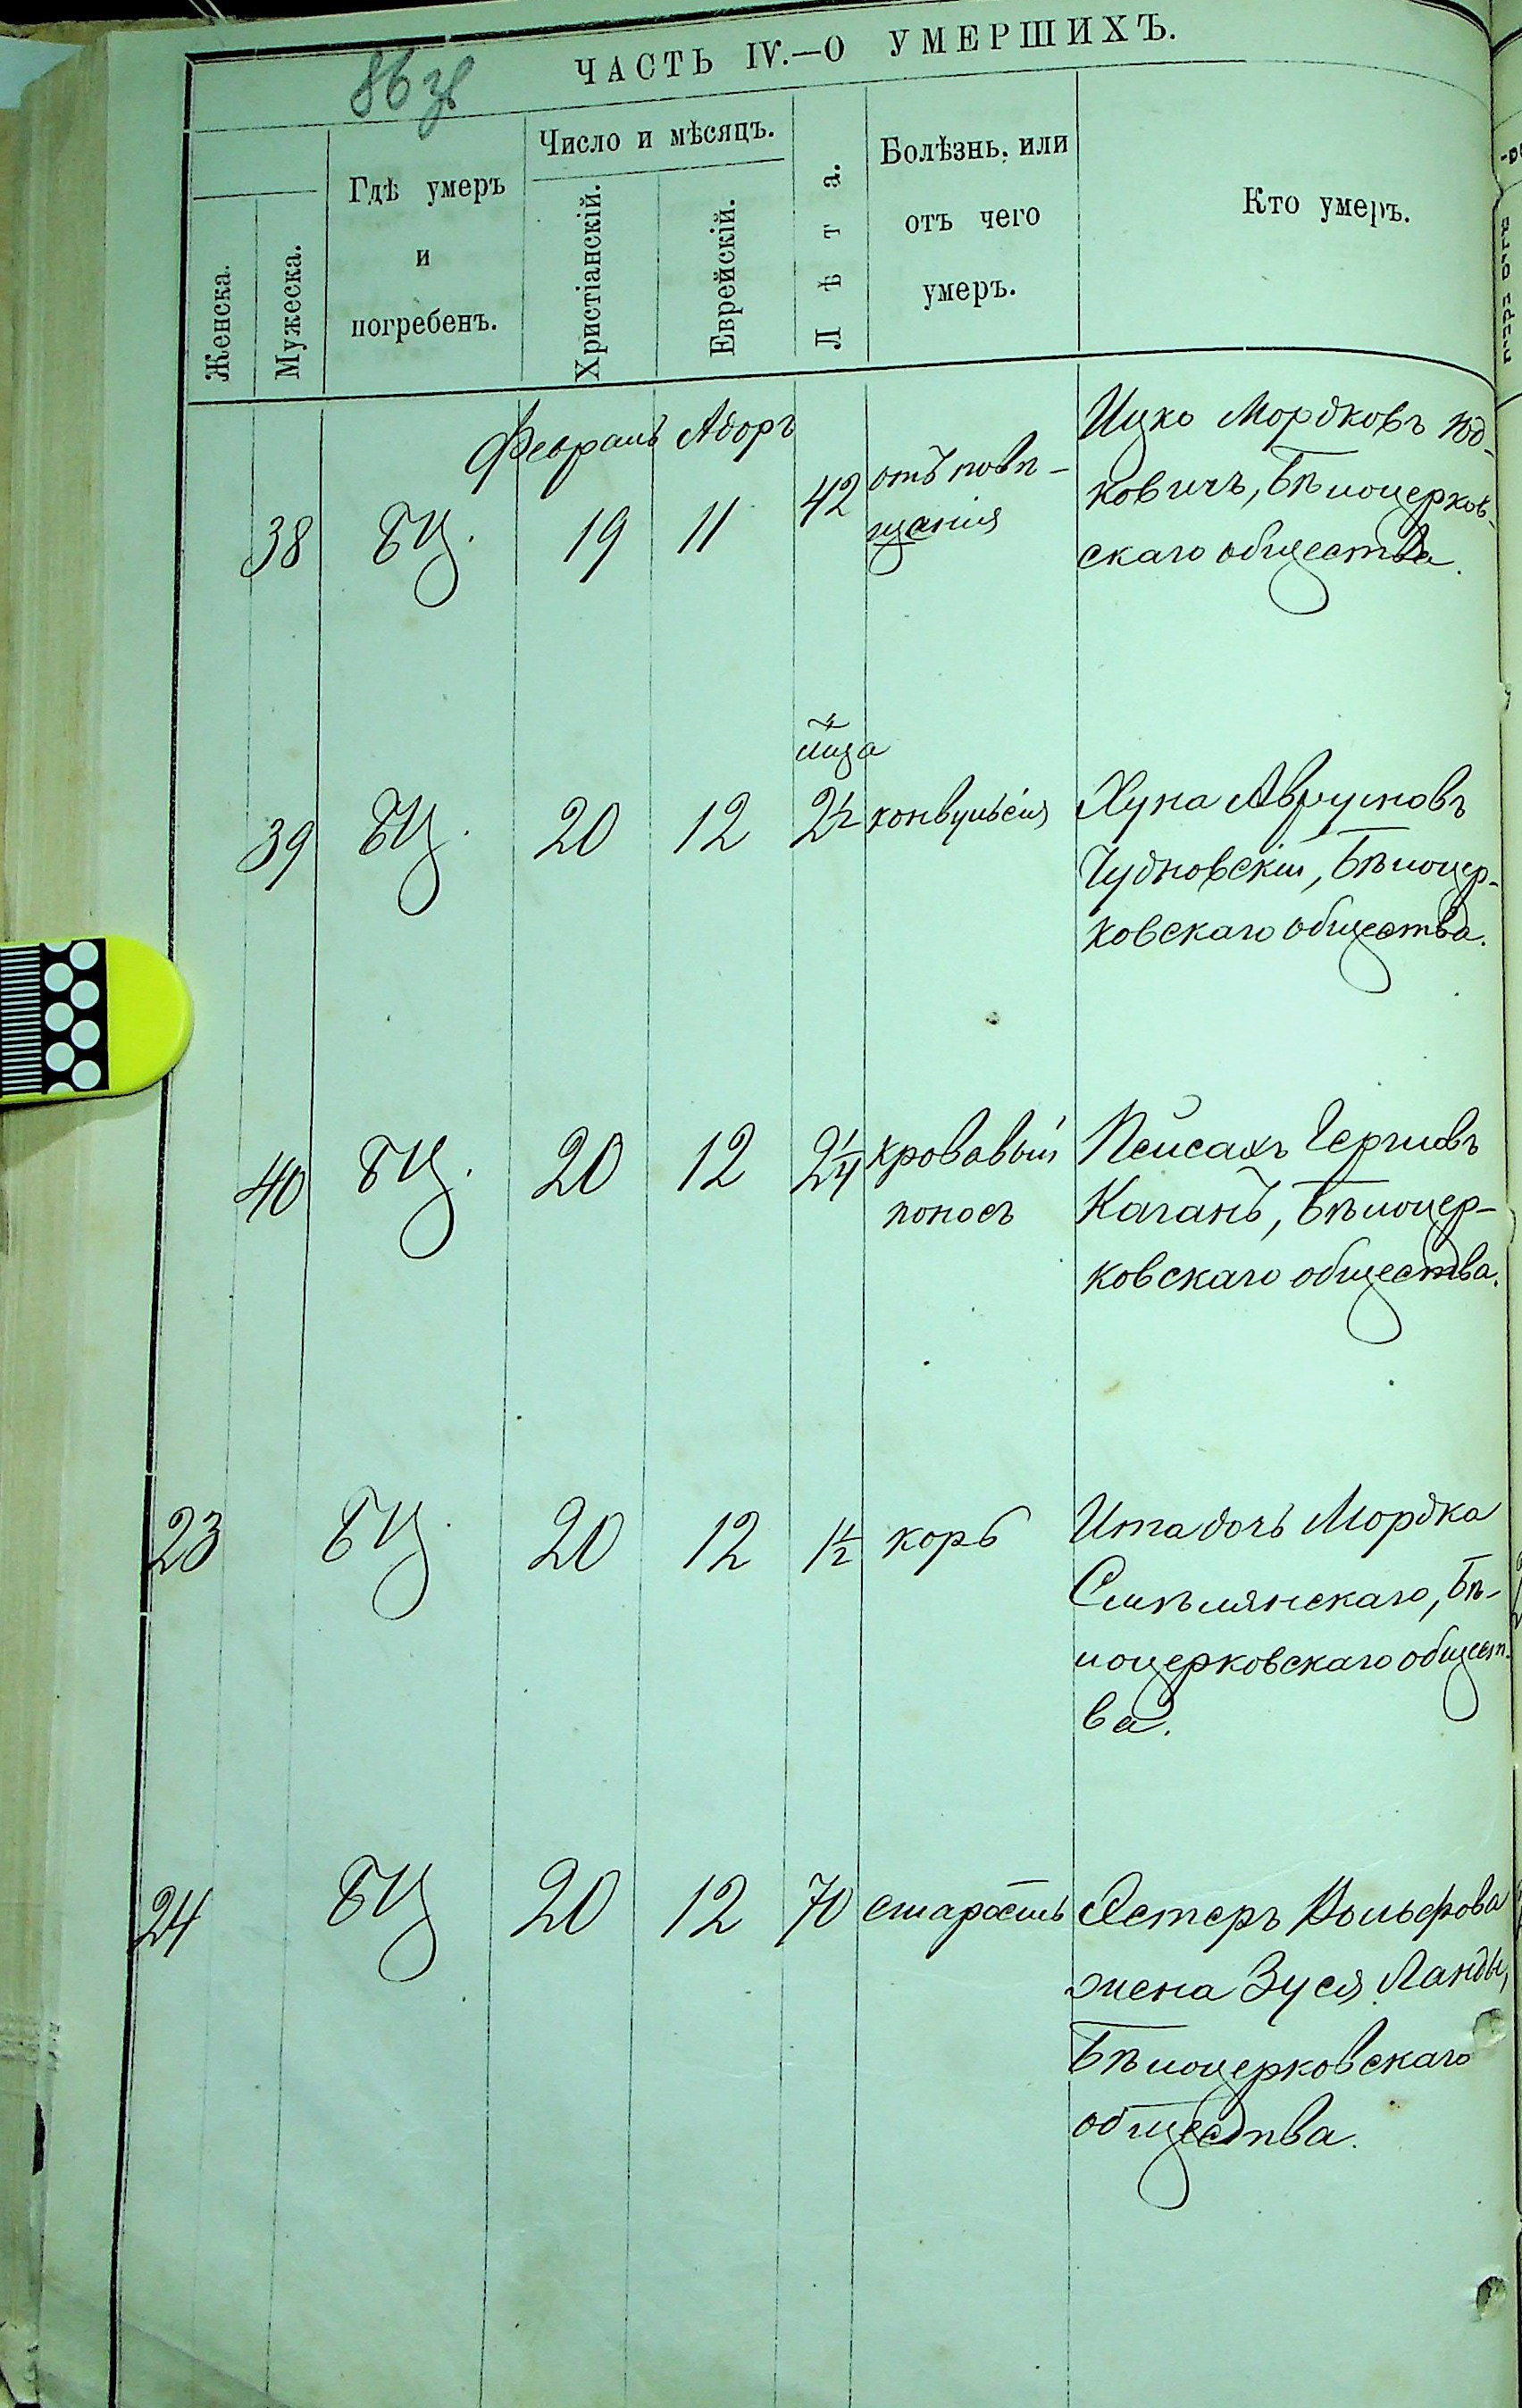 86 зв
ЧАСТЬ IV.—О УМЕРШИХЪ.
Женска.
Мужеска.
Гдѣ умеръ
и
погребенъ.
Число и мѣсяцъ.
Христіанскій.
Еврейскій.
Лѣта.
Болѣзнь, или
отъ чего
умеръ.
Кто умеръ.
Февраль Адоръ
38 БЦ. 19 11 42
отъ повѣ-
щанія
Ицко Мордковъ Юд-
ковичъ, Бѣлоцерков-
скаго общества.
39 БЦ. 20 12 м-ца 2½ конвульсія
Хуна Аврумовъ
Чудновскій, Бѣлоцер-
ковскаго общества.
40 БЦ. 20 12 2¼ кровавый
поносъ
Пейсахъ Гершовъ
Каганъ, Бѣлоцер-
ковскаго общества.
23 БЦ. 20 12 1½ корь
Ита дочь Мордка
Смѣлянскаго, Бѣ-
лоцерковскаго общест-
ва.
24 БЦ 20 12 70 старость
Эстеръ Вольфова
жена Зуся Ланды,
Бѣлоцерковскаго
общества.